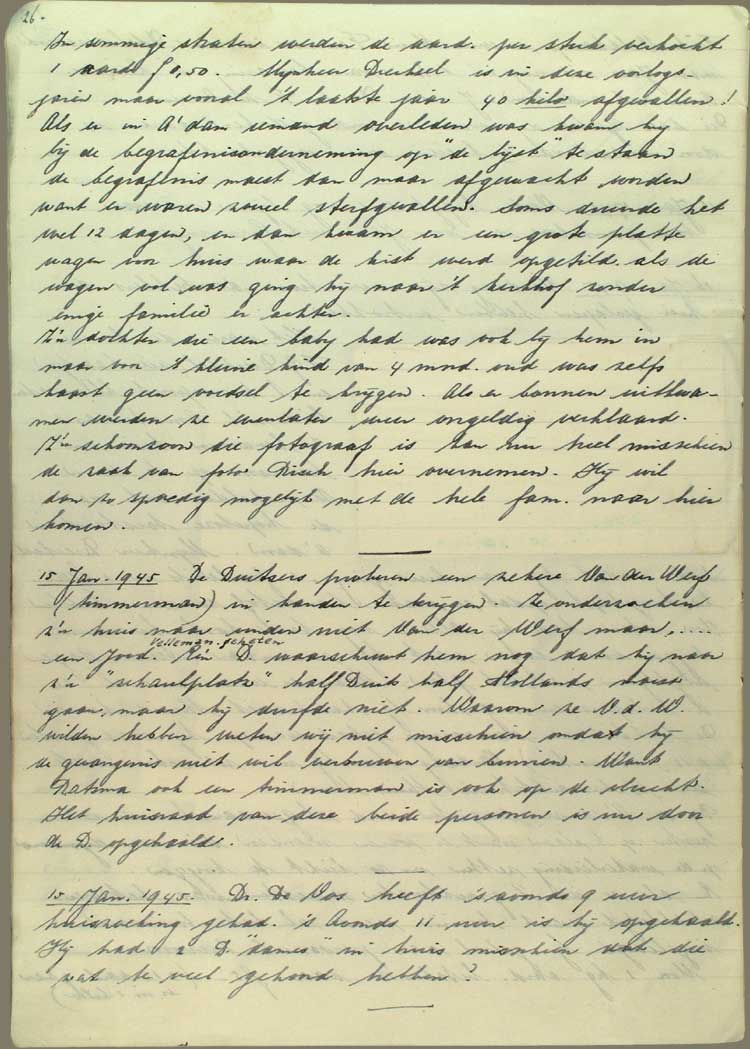 26.
In sommige straten werden de aard. per stuk verkocht
1 aard. f 0,50. Mijnheer Drechsel is in deze oorlogs-
jaren maar vooral 't laatste jaar 40 kilo afgevallen!
Als er in A'dam iemand overleden was kwam hij
bij de begrafenisonderneming op "de lijst" te staan
de begrafenis moest dan maar afgewacht worden
want er waren zoveel sterfgevallen. Soms duurde het
wel 12 dagen, en dan kwam er een grote platte
wagen voor huis waar de kist werd opgetild. als de
wagen vol was ging hij naar 't kerkhof zonder
enige familie er achter.
Z'n dochter die een baby had was ook bij hem in
maar voor 't kleine kind van 4 mnd. oud was zelfs
haast geen voedsel te krijgen. Als er bonnen uitkwa-
men werden ze even later weer ongeldig verklaard.
Z'n schoonzoon die fotograaf is kan nu heel misschien
de zaak van foto Risch hier overnemen. Hij wil
dan zo spoedig mogelijk met de hele fam. naar hier
komen.
15 Jan. 1945 De Duitsers proberen een zekere Van der Werf
(timmerman) in handen te krijgen. Ze onderzoeken
z'n huis maar vinden niet Van der Werf maar,....
Velleman. geheten
een Jood. Eén D. waarschuwt hem nog dat hij naar
z'n "schaulplatz" half Duits half Hollands moest
gaan, maar hij durfde niet. Waarom ze V. d. W.
wilden hebben weten wij niet misschien omdat hij
de gevangenis niet wil verbouwen van binnen. Want
Ratsma ook een timmerman is ook op de vlucht.
Het huisraad van deze beide personen is nu door
de D. opgehaald.
15 Jan. 1945. Dr. De Vos heeft 's avonds 9 uur
huiszoeking gehad. 's Avonds 11 uur is hij opgehaald.
Hij had 2 D. "dames" in huis misschien dat die
wat te veel gehoord hebben?